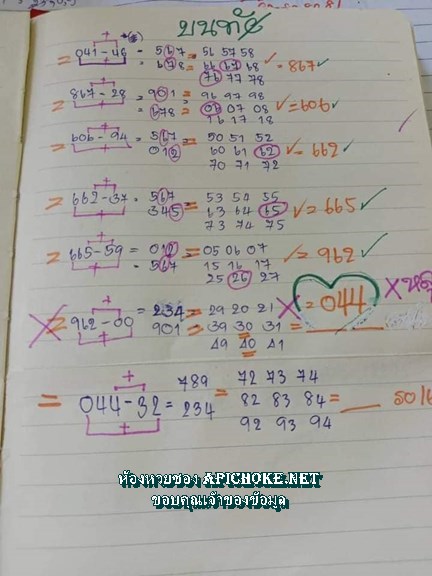 บนทัด
= 041-46 = 567 = 56 57 58
= 678 66 67 68 ✓ = 867 ✓
76 77 78
= 867-28 = 901 = 96 97 98
= 678 06 07 08 ✓ = 606 ✓
16 17 18
= 606-94 = 567 50 51 52
012 60 61 62 ✓ = 662 ✓
70 71 72
= 662-37 = 567 53 54 55
345 63 64 65 ✓ = 665 ✓
73 74 75
= 665-59 = 012 = 05 06 07
= 567 15 16 17 ✓ = 962 ✓
25 26 27
X = 962-00 = 234 = 29 20 21 X = 044 X
901 = 39 30 31 =
49 40 41
= 044-32 = 789 = 72 73 74
234 82 83 84 =
92 93 94
ห้องหวยซอง APICHOKE.NET
ขอบคุณเจ้าของข้อมูล